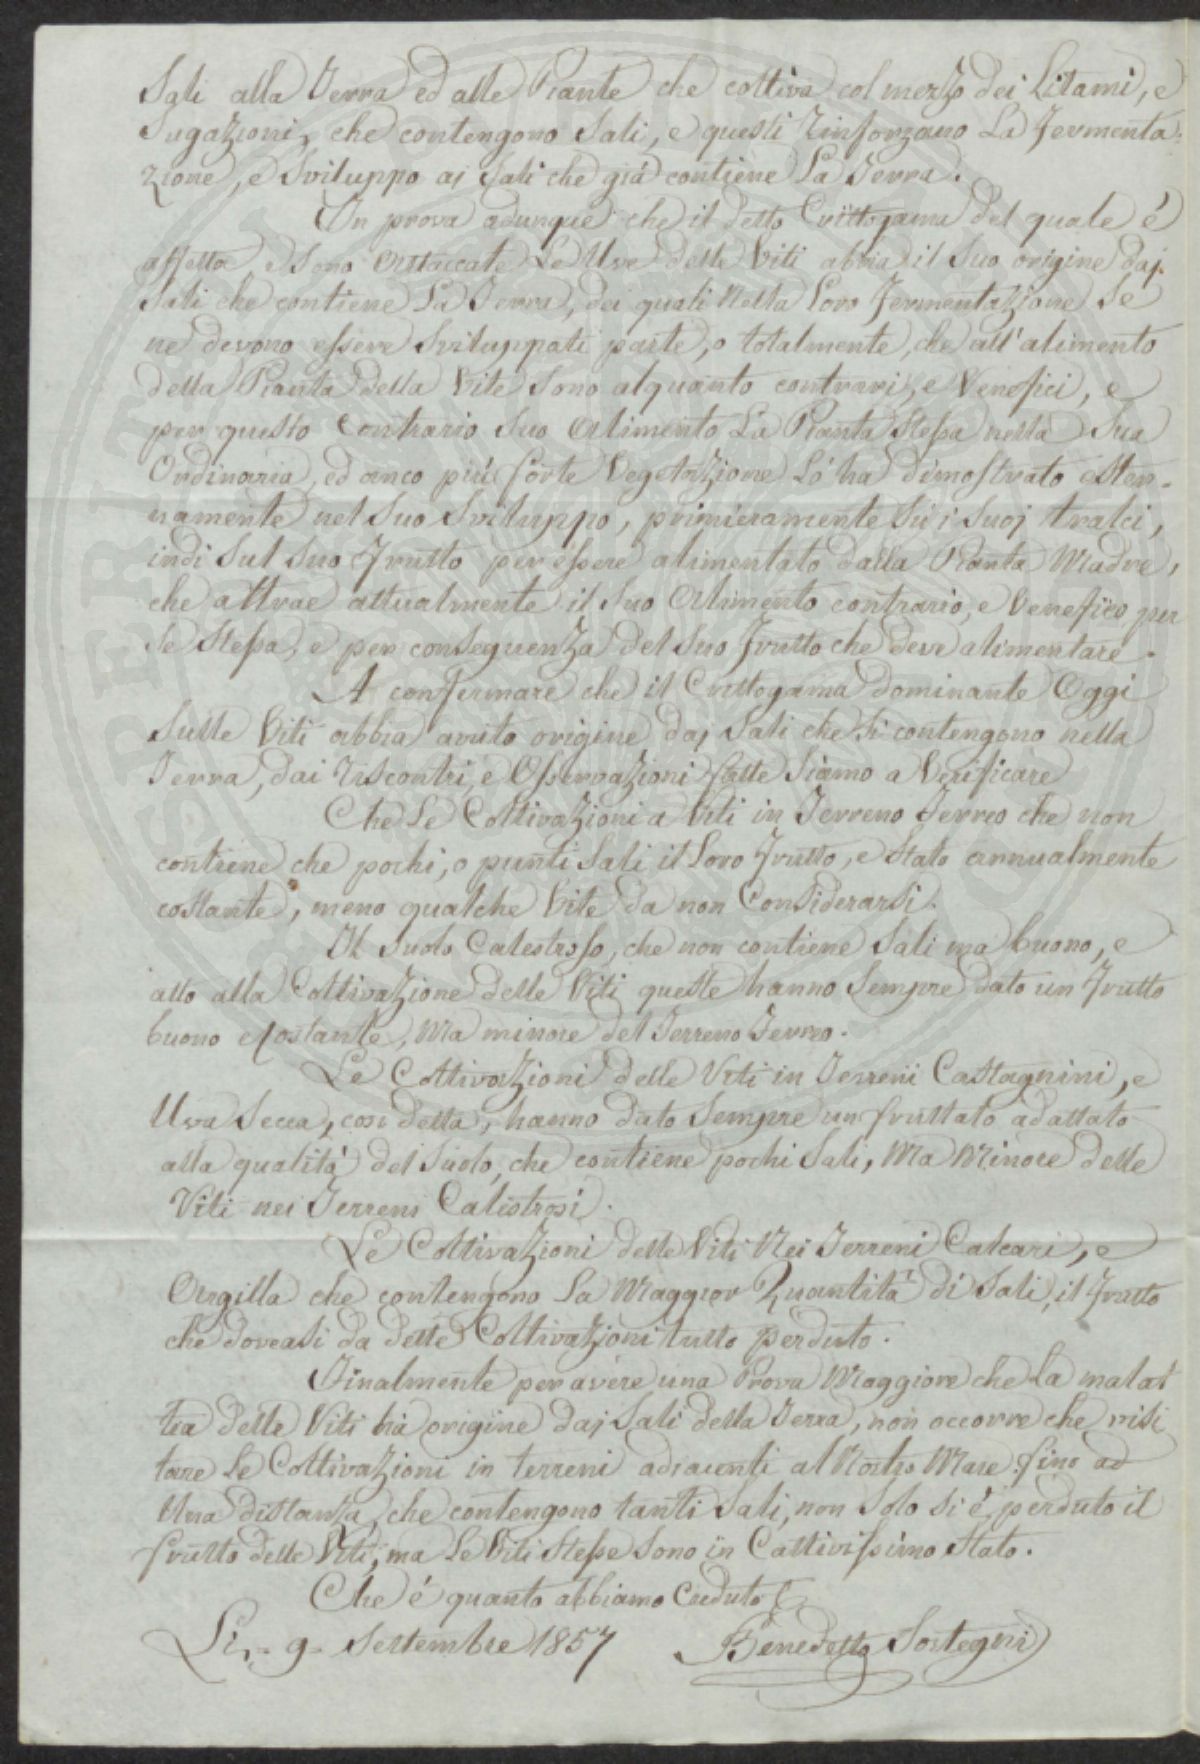 Sali alla Terra ed alle Piante che coltiva col mezzo dei Litami, e
Sugazioni, che contengono Sali, e questi rinforzano La Fermenta-
zione, e Sviluppo ai Sali che già contiene La Terra.
In prova adunque che il detto Crittogama del quale è
affetta, e sono Attaccate Le Uve delle Viti abbia il Suo origine dai
Sali che contiene La Terra, dei quali Nella Loro Fermentazione Se
ne devono essere Sviluppati parte, o totalmente, che all'alimento
della Pianta della Vite Sono alquanto contrari, e Venefici, e
per questo Contrario Suo Alimento La Pianta Stessa nella Sua
Ordinaria, ed anco più forte Vegetazione Lo ha dimostrato ester-
namente nel Suo Sviluppo, primieramente Su i Suoi tralci,
indi Sul Suo Frutto per essere alimentato dalla Pianta Madre,
che attrae attualmente il Suo Alimento contrario, e Venefico per
Se Stessa, e per conseguenza del Suo Frutto che deve alimentare.
A confermare che il Crittogama dominante Oggi
Sulle Viti abbia avuto origine dai Sali che Si contengono nella
Terra, dai riscontri, e Osservazioni fatte Siamo a Verificare
Che Le Coltivazioni a Viti in Terreno Ferreo che non
contiene che pochi, o punti Sali il Loro Frutto, e Stato annualmente
costante, meno qualche Vite da non Considerarsi.
Il Suolo Calestroso, che non contiene Sali ma buono, e
atto alla Coltivazione delle Viti queste hanno Sempre dato un Frutto
buono e costante, Ma minore del Terreno Ferreo.
Le Coltivazioni delle Viti in Terreni Castagnini, e
Uva Secca, così detta, hanno dato Sempre un fruttato adattato
alla qualità del Suolo, che contiene pochi Sali, Ma Minore delle
Viti nei Terreni Calestrosi.
Le Coltivazioni delle Viti Nei Terreni Calcari, e
Argilla che contengono La Maggior Quantità di Sali, il Frutto
che doveasi da dette Coltivazioni tutto perduto.
Finalmente per avere una Prova Maggiore che La malat
tia delle Viti ha origine dai Sali della Terra, non occorre che visi
tare Le Coltivazioni in terreni adiacenti al Nostro Mare fino ad
Una distanza, che contengono tanti Sali, non Solo Si è perduto il
frutto delle Viti, ma Le Viti Stesse Sono in Cattivissimo Stato.
Che è quanto abbiamo Creduto
Li, 9 Settembre 1857 Benedetto Sostegni